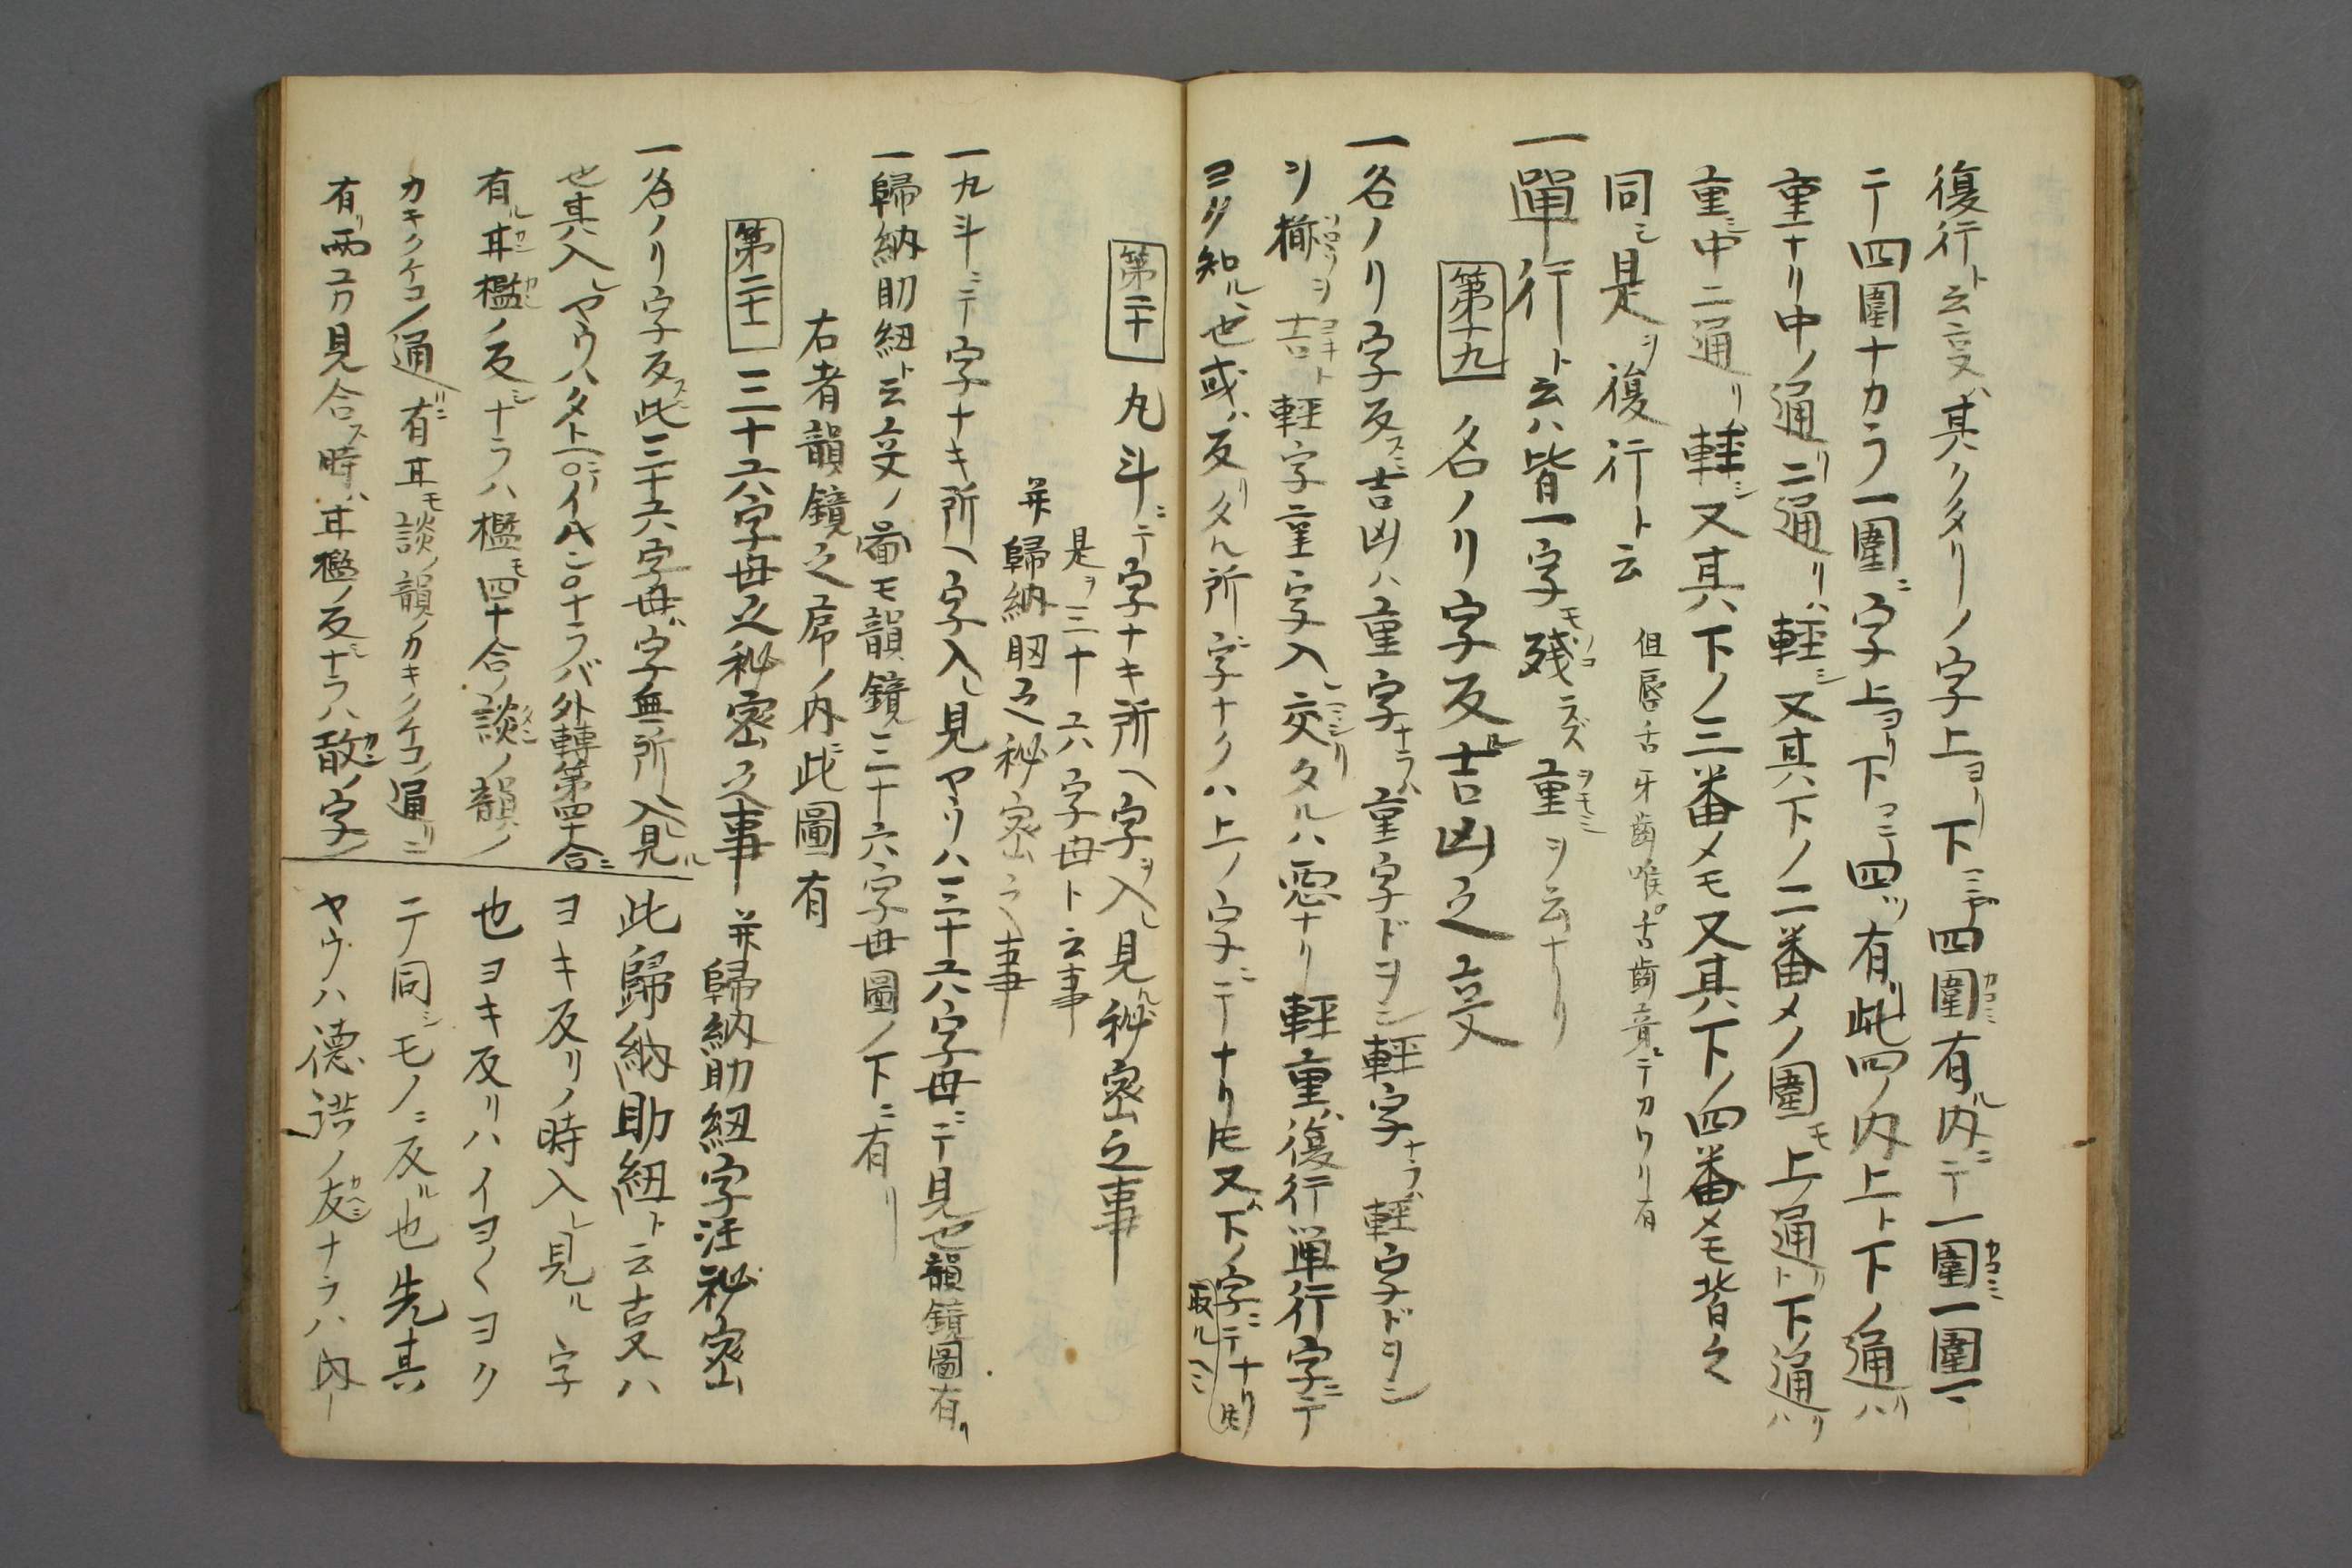 復行ト云叓ハ其クタリノ字上ヨリ下ニヤ四圍有ル内ニテ一圍一圍ニ
テ四圍ナカラ一圍ニ字上ヨリ下マテ四ツ有リ此四ノ内上ト下ノ通リハ
重ナリ中ノ通リ二通リハ軽シ又其下ノ二番メノ圍モ上ノ通リト下ノ通リハ
重シ中二通リ軽シ又其下ノ三番メモ又其下ノ四番メモ皆々
同シ是ヲ復行ト云 但唇舌牙歯喉ト舌歯音ニテカワリ有
一單行ト云ハ皆一字モ残ラズ重ヲ云ナリ
第十九 名ノリ字反吉凶之叓
一名ノリ字反スニ吉凶ハ重字ナラハ重字ドヲシ軽字ナラハ軽字ドヲシ
ソ揃ヲ吉ト軽字重字入レ交リタルハ悪ナリ軽重ハ復行単行字ニテ
ヨク知ル也或ハ反リタル所字ナクハ上ノ字ニテナリ𪜈又ハ下ノ字ニテナリ𪜈
取ルヘシ
第二十 九斗ニテ字ナキ所ヘ字ヲ入レ見ル秘密之事
是ヲ三十六字母ト云事
并歸納助之秘密之事
一九斗ニテ字ナキ所ヘ字入レ見ヤウハ三十六字母ニテ見也韻鏡圖有リ
一歸納助紐ト云叓ノ啚モ韻鏡三十六字母圖ノ下ニ有リ
右者韻鏡之序ノ内ニ此圖有
第二十一 三十六字母之秘密之事 并歸納助紐字汪秘密
一名ノリ字反スニ此三十六字母ハ字無所入レ見ル
也其入レヤウハタトヘハ
有ル甘檻ノ反シナラハ檻モ四十合ノ談ノ韻ノ
カキクケコノ通リニ有甘モ談ノ韻ノカキクケコノ通リニ
有リ両ユカ見合ス時ハ甘檻ノ反シナラハ敢ノ字
此歸納助紐ト云叓ハ
ヨキ反リノ時入レ見ル字
也ヨキ反リハイヨ〱ヨク
テ同シモノニ反ル也先其
ヤウハ徳洪ノ反シナラハ内